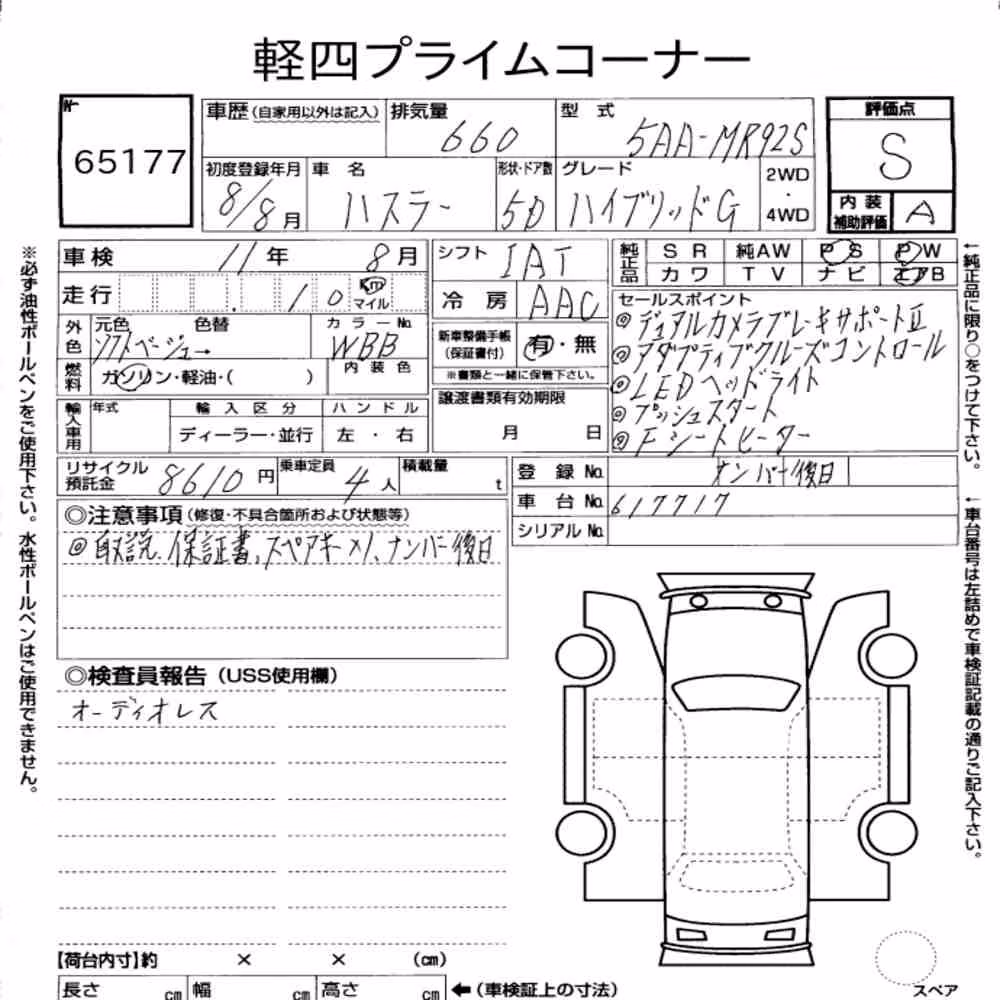 軽四プライムコーナー
65177
車歴(自家用以外は記入) 排気量 660 型式 5AA-MR92S
初度登録年月 8/8月 車名 ハスラー 形状・ドア数 5D グレード ハイブリッドG 2WD・4WD
評価点 S
内装補助評価 A
車検 11年 8月
走行 10 Km マイル
外色 元色 色替 ソフトベージュー カラーNo. WBB
燃料 ガソリン・軽油・( ) 内装色
輸入車用 年式 輸入区分 ディーラー・並行 ハンドル 左・右
シフト IAT
冷房 AAC
新車整備手帳(保証書付) 有・無
※書類と一緒に保管下さい。
譲渡書類有効期限 月 日
純正品 SR 純AW PS PW
カワ TV ナビ エアB
セールスポイント
◎デュアルカメラブレーキサポートⅡ
◎アダプティブクルーズコントロール
◎LEDヘッドライト
◎プッシュスタート
◎Fシートヒーター
リサイクル預託金 8610円 乗車定員 4人 積載量 t
登録No. ナンバー後日
車台No. 617717
シリアルNo.
◎注意事項(修復・不具合箇所および状態等)
◎取説、保証書、スペアキーメ1、ナンバー後日
◎検査員報告(USS使用欄)
オーディオレス
【荷台内寸】約 × × (cm)
長さ cm 幅 cm 高さ cm ←(車検証上の寸法)
スペア
※必ず油性ボールペンをご使用下さい。水性ボールペンはご使用できません。
←純正品に限り○をつけて下さい。
←車台番号は左詰めで車検証記載の通りご記入下さい。